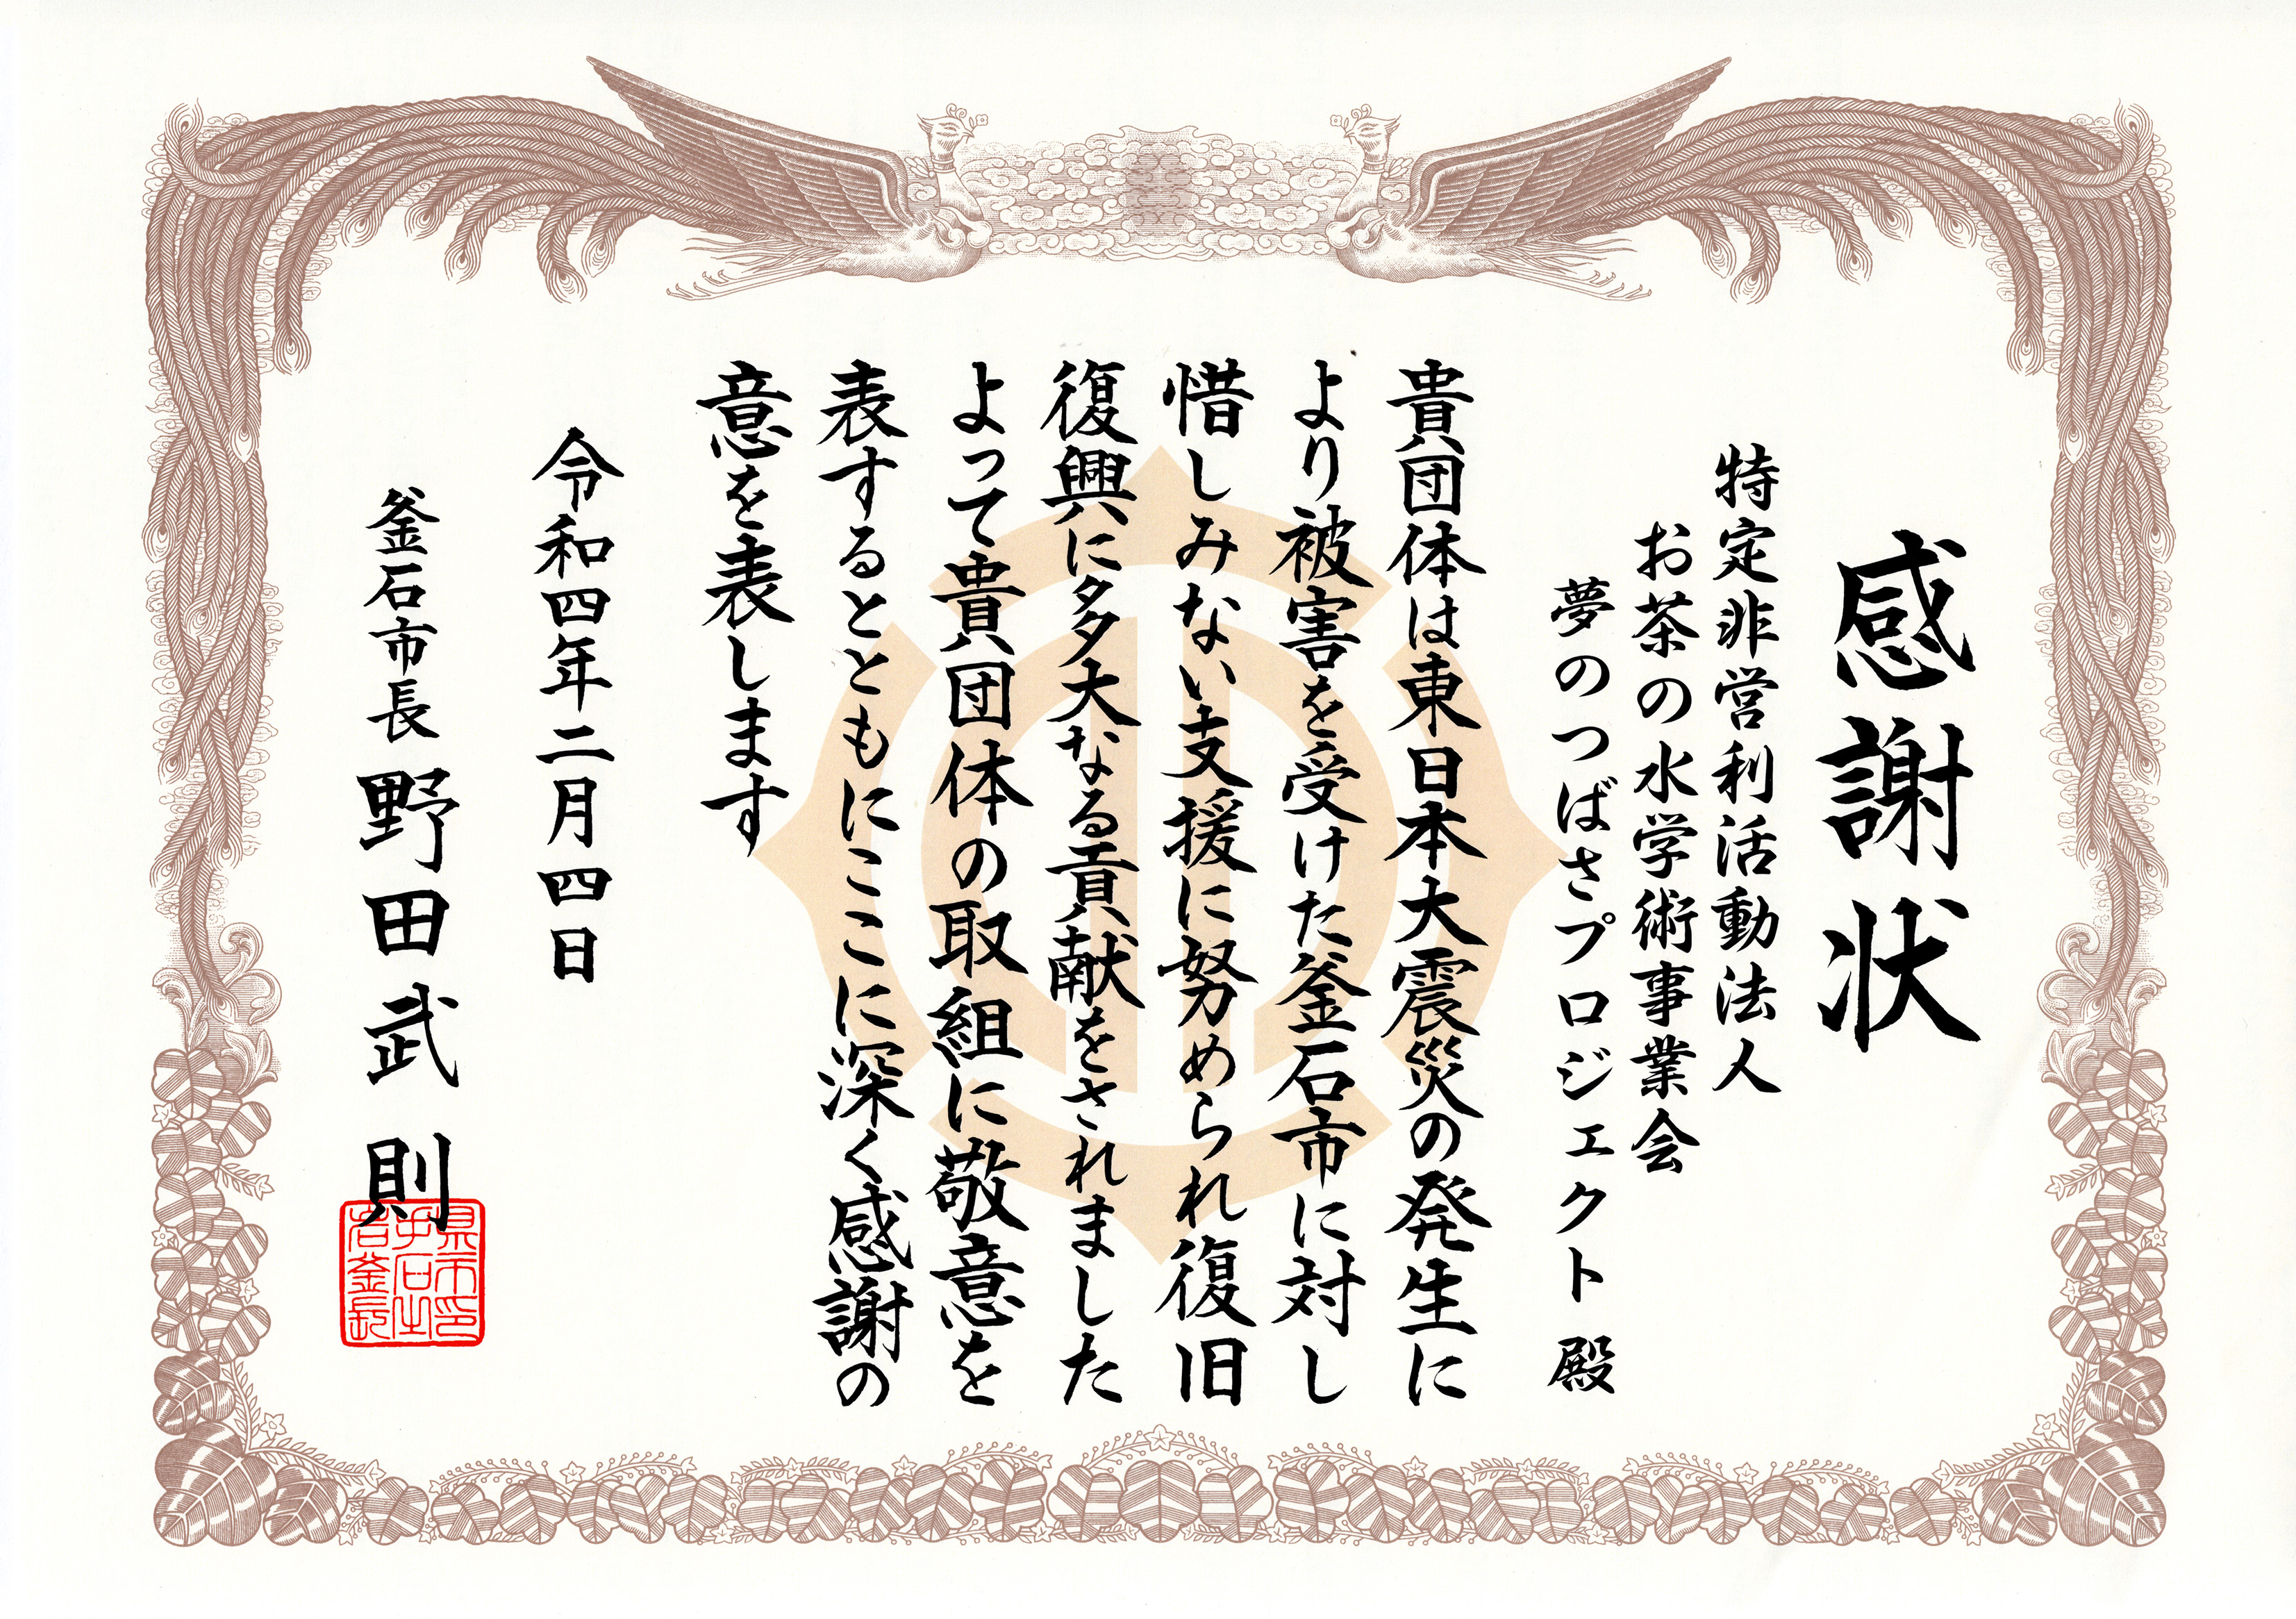 感謝状
特定非営利活動法人
お茶の水学術事業会
夢のつばさプロジェクト 殿
貴団体は東日本大震災の発生に
より被害を受けた釜石市に対し
惜しみない支援に努められ復旧
復興に多大なる貢献をされました
よって貴団体の取組に敬意を
表するとともにここに深く感謝の
意を表します
令和四年二月四日
釜石市長 野田武則
岩手県釜石市長之印